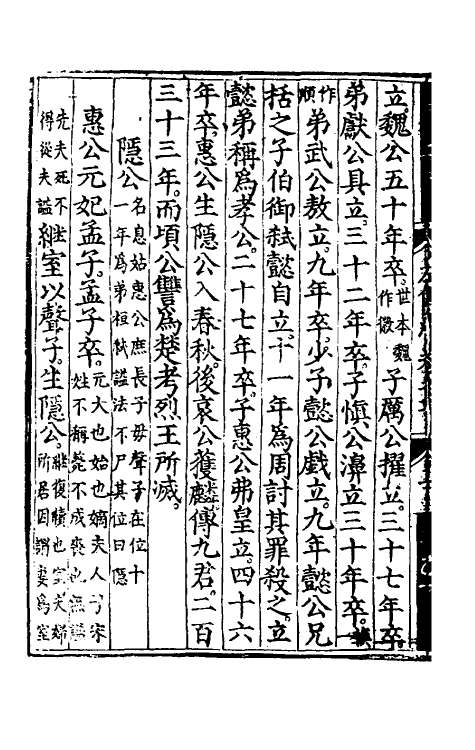 立。魏公五十年卒。世本魏作微子厲公擢立。三十七年卒。
弟獻公具立。三十二年卒。子慎公濞立三十年卒。
作順弟武公敖立。九年卒。少子懿公戲立。九年懿公兄
括之子伯御弑懿自立。十一年為周討其罪殺之。立
懿弟稱為孝公。二十七年卒。子惠公弗皇立。四十六
年卒。惠公生隱公入春秋。後哀公獲麟傳九君。二百
三十三年。而頃公讐為楚考烈王所滅。
隱公名息姑惠公庶長子母聲子在位十一年為弟桓弑謚法不尸其位曰隱
惠公元妃孟子。孟子卒。元大也始也嫡夫人子宋姓不稱薨不成喪也無謚
先夫死不得從夫謚継室以聲子。生隱公。継復續也室夫婦所居因謂妻為室